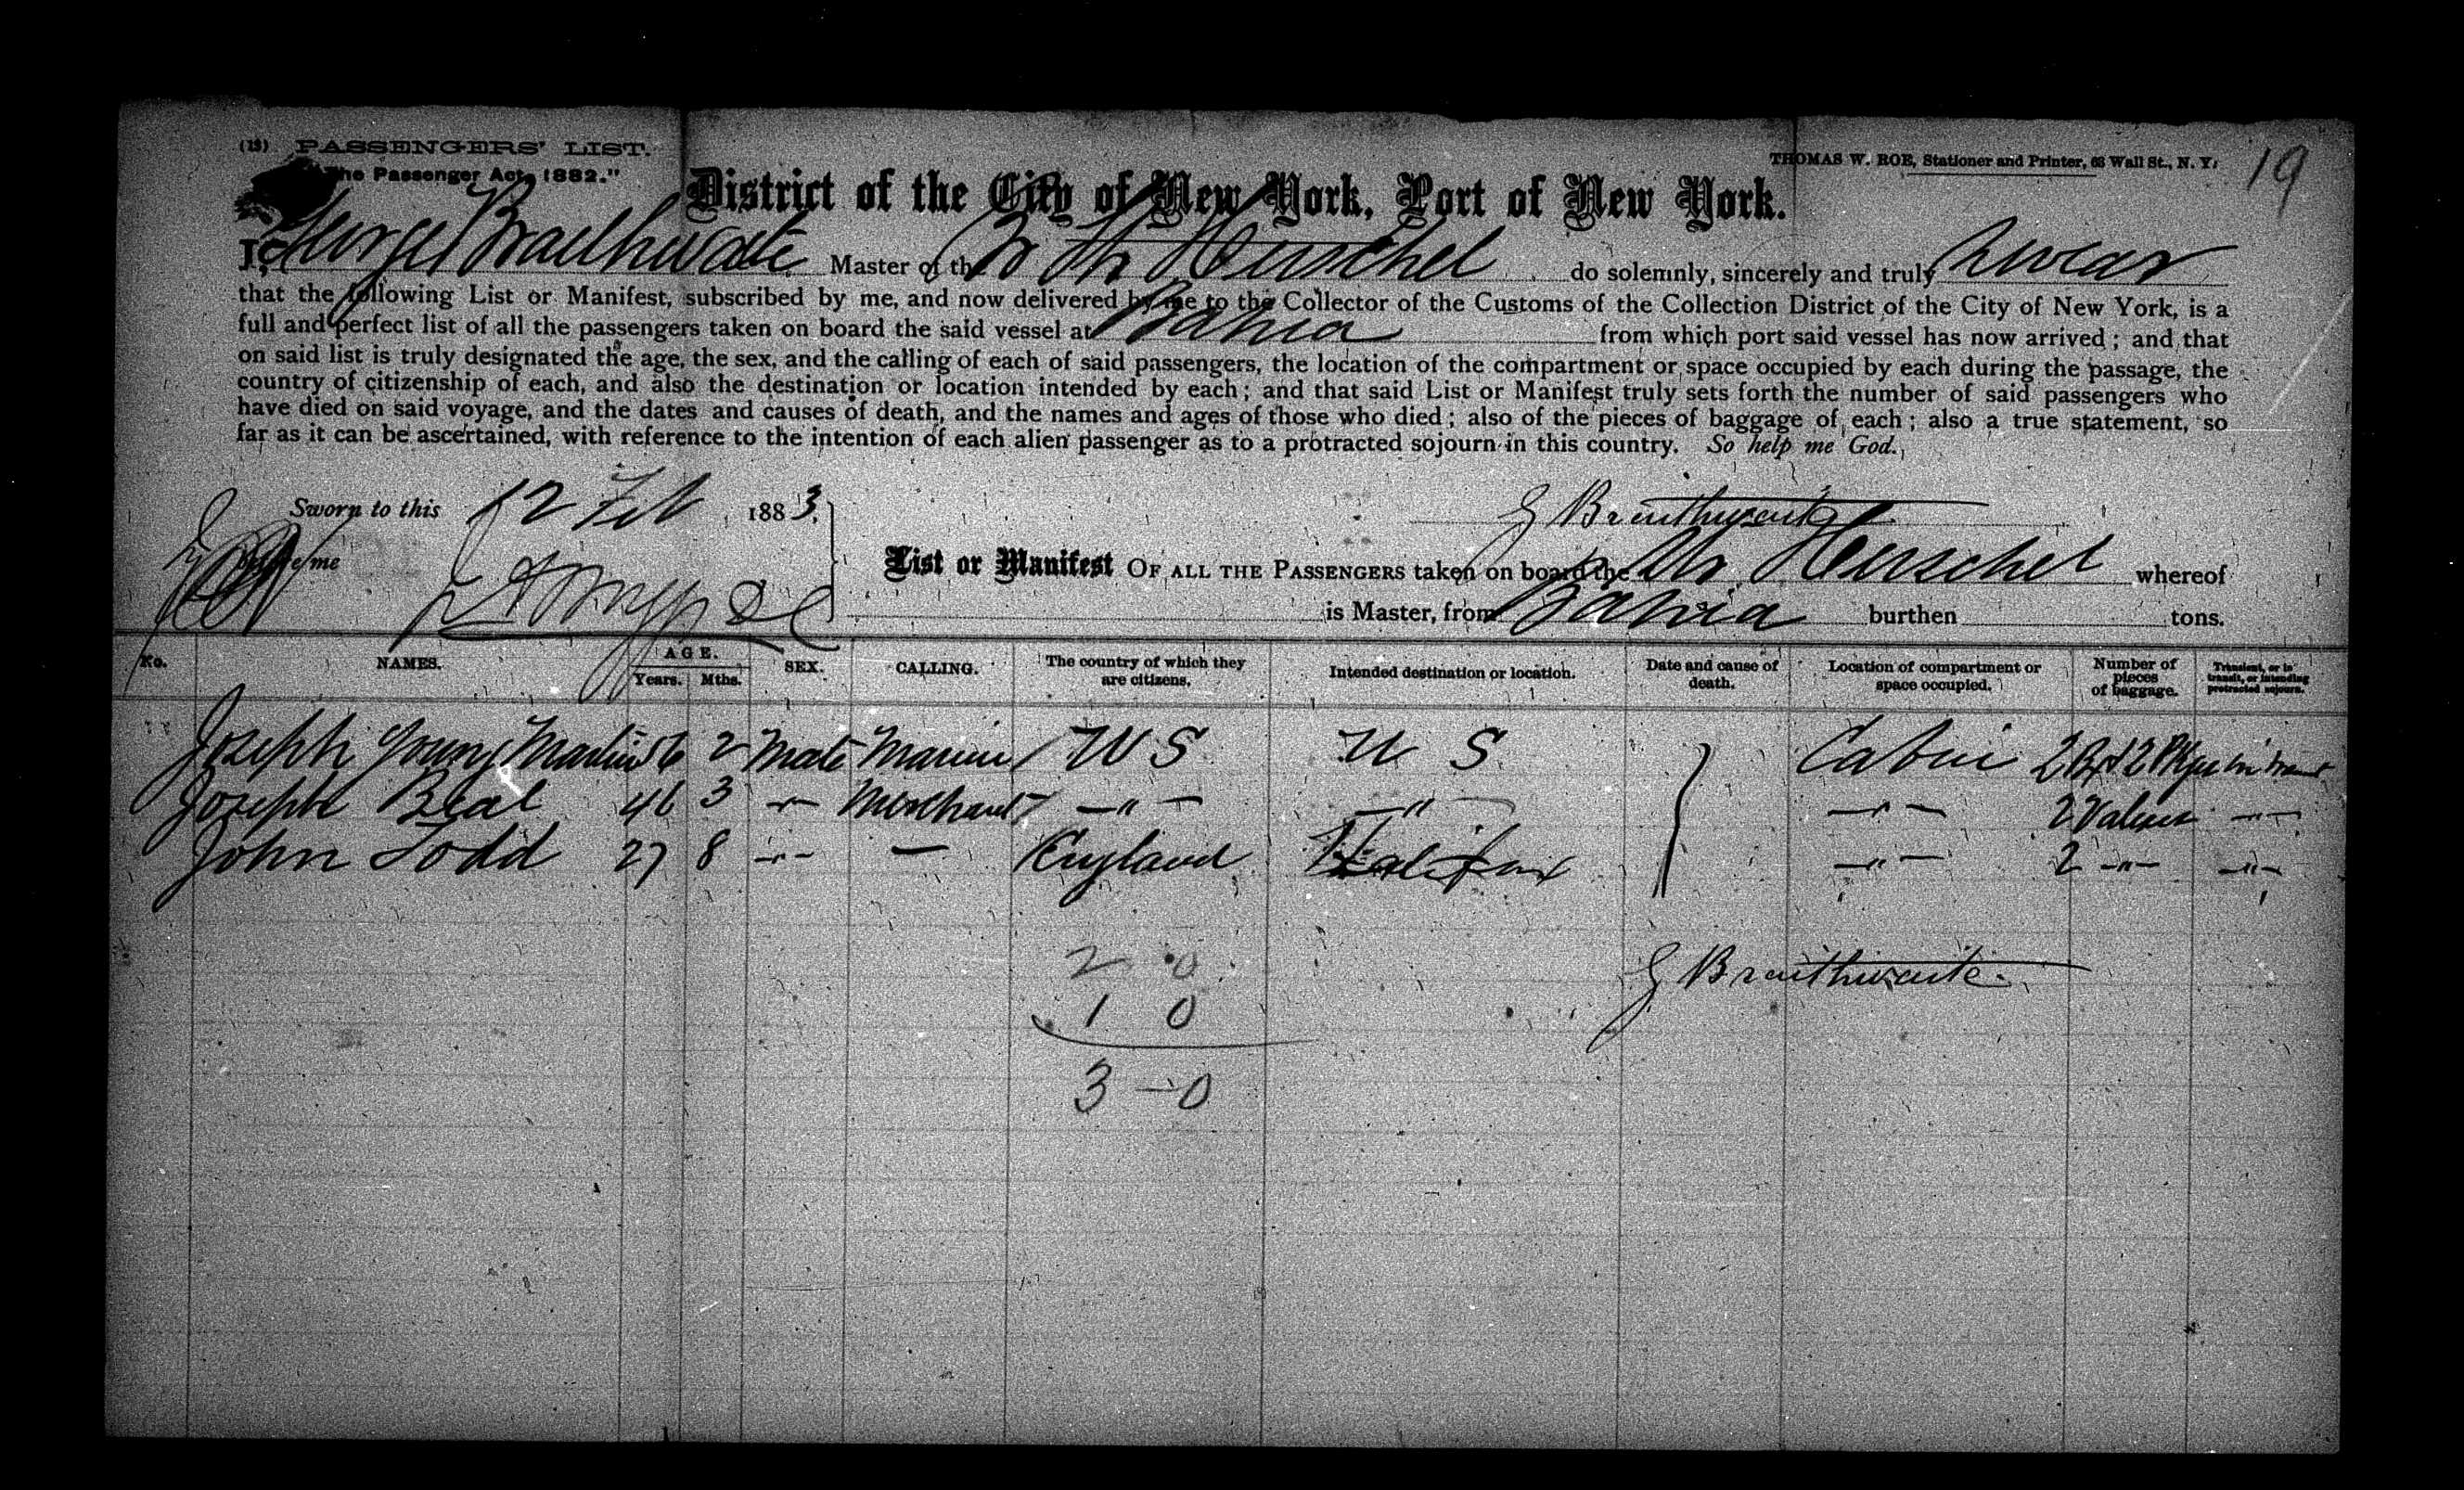 (13) PASSENGERS' LIST.
The Passenger Act, 1882."
THOMAS W. ROE, Stationer and Printer, 63 Wall St., N. Y.
19
District of the City of New York, Port of New York.
I, George Braithwaite Master of the Br Str Herschel do solemnly, sincerely and truly swear
that the following List or Manifest, subscribed by me, and now delivered by me to the Collector of the Customs of the Collection District of the City of New York, is a
full and perfect list of all the passengers taken on board the said vessel at Bahia from which port said vessel has now arrived; and that
on said list is truly designated the age, the sex, and the calling of each of said passengers, the location of the compartment or space occupied by each during the passage, the
country of citizenship of each, and also the destination or location intended by each; and that said List or Manifest truly sets forth the number of said passengers who
have died on said voyage, and the dates and causes of death, and the names and ages of those who died; also of the pieces of baggage of each; also a true statement, so
far as it can be ascertained, with reference to the intention of each alien passenger as to a protracted sojourn in this country. So help me God.
Sworn to this 12 Feb 1883.
G Braithwaite
before me
List or Manifest OF ALL THE PASSENGERS taken on board the Str Herschel whereof
is Master, from Bahia burthen tons.
No. NAMES. AGE. Years. Mths. SEX. CALLING. The country of which they are citizens. Intended destination or location. Date and cause of death. Location of compartment or space occupied. Number of pieces of baggage. Transient, or in transit, or intending protracted sojourn.
Joseph Young Martin 56 2 Male U S U S Cabin
Joseph Beal 46 3 -"- Merchant -"- -"- -"- 2 Valises -"-
John Todd 27 8 -"- - England Halifax -"- 2 -"- -"-
2 0
G Braithwaite.
1 0
3 - 0